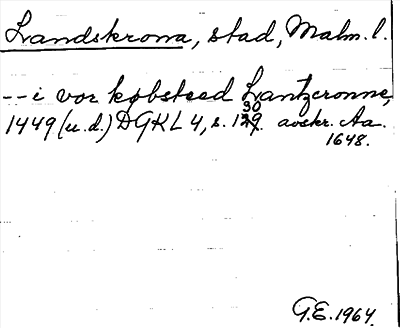 Landskrona, stad, Malm. l.
-- i vor købsteed Lantzcronne,
30
1449 (u.d.) DGKL 4, s. 129. avskr. Aa.
1648.
G.E. 1964.